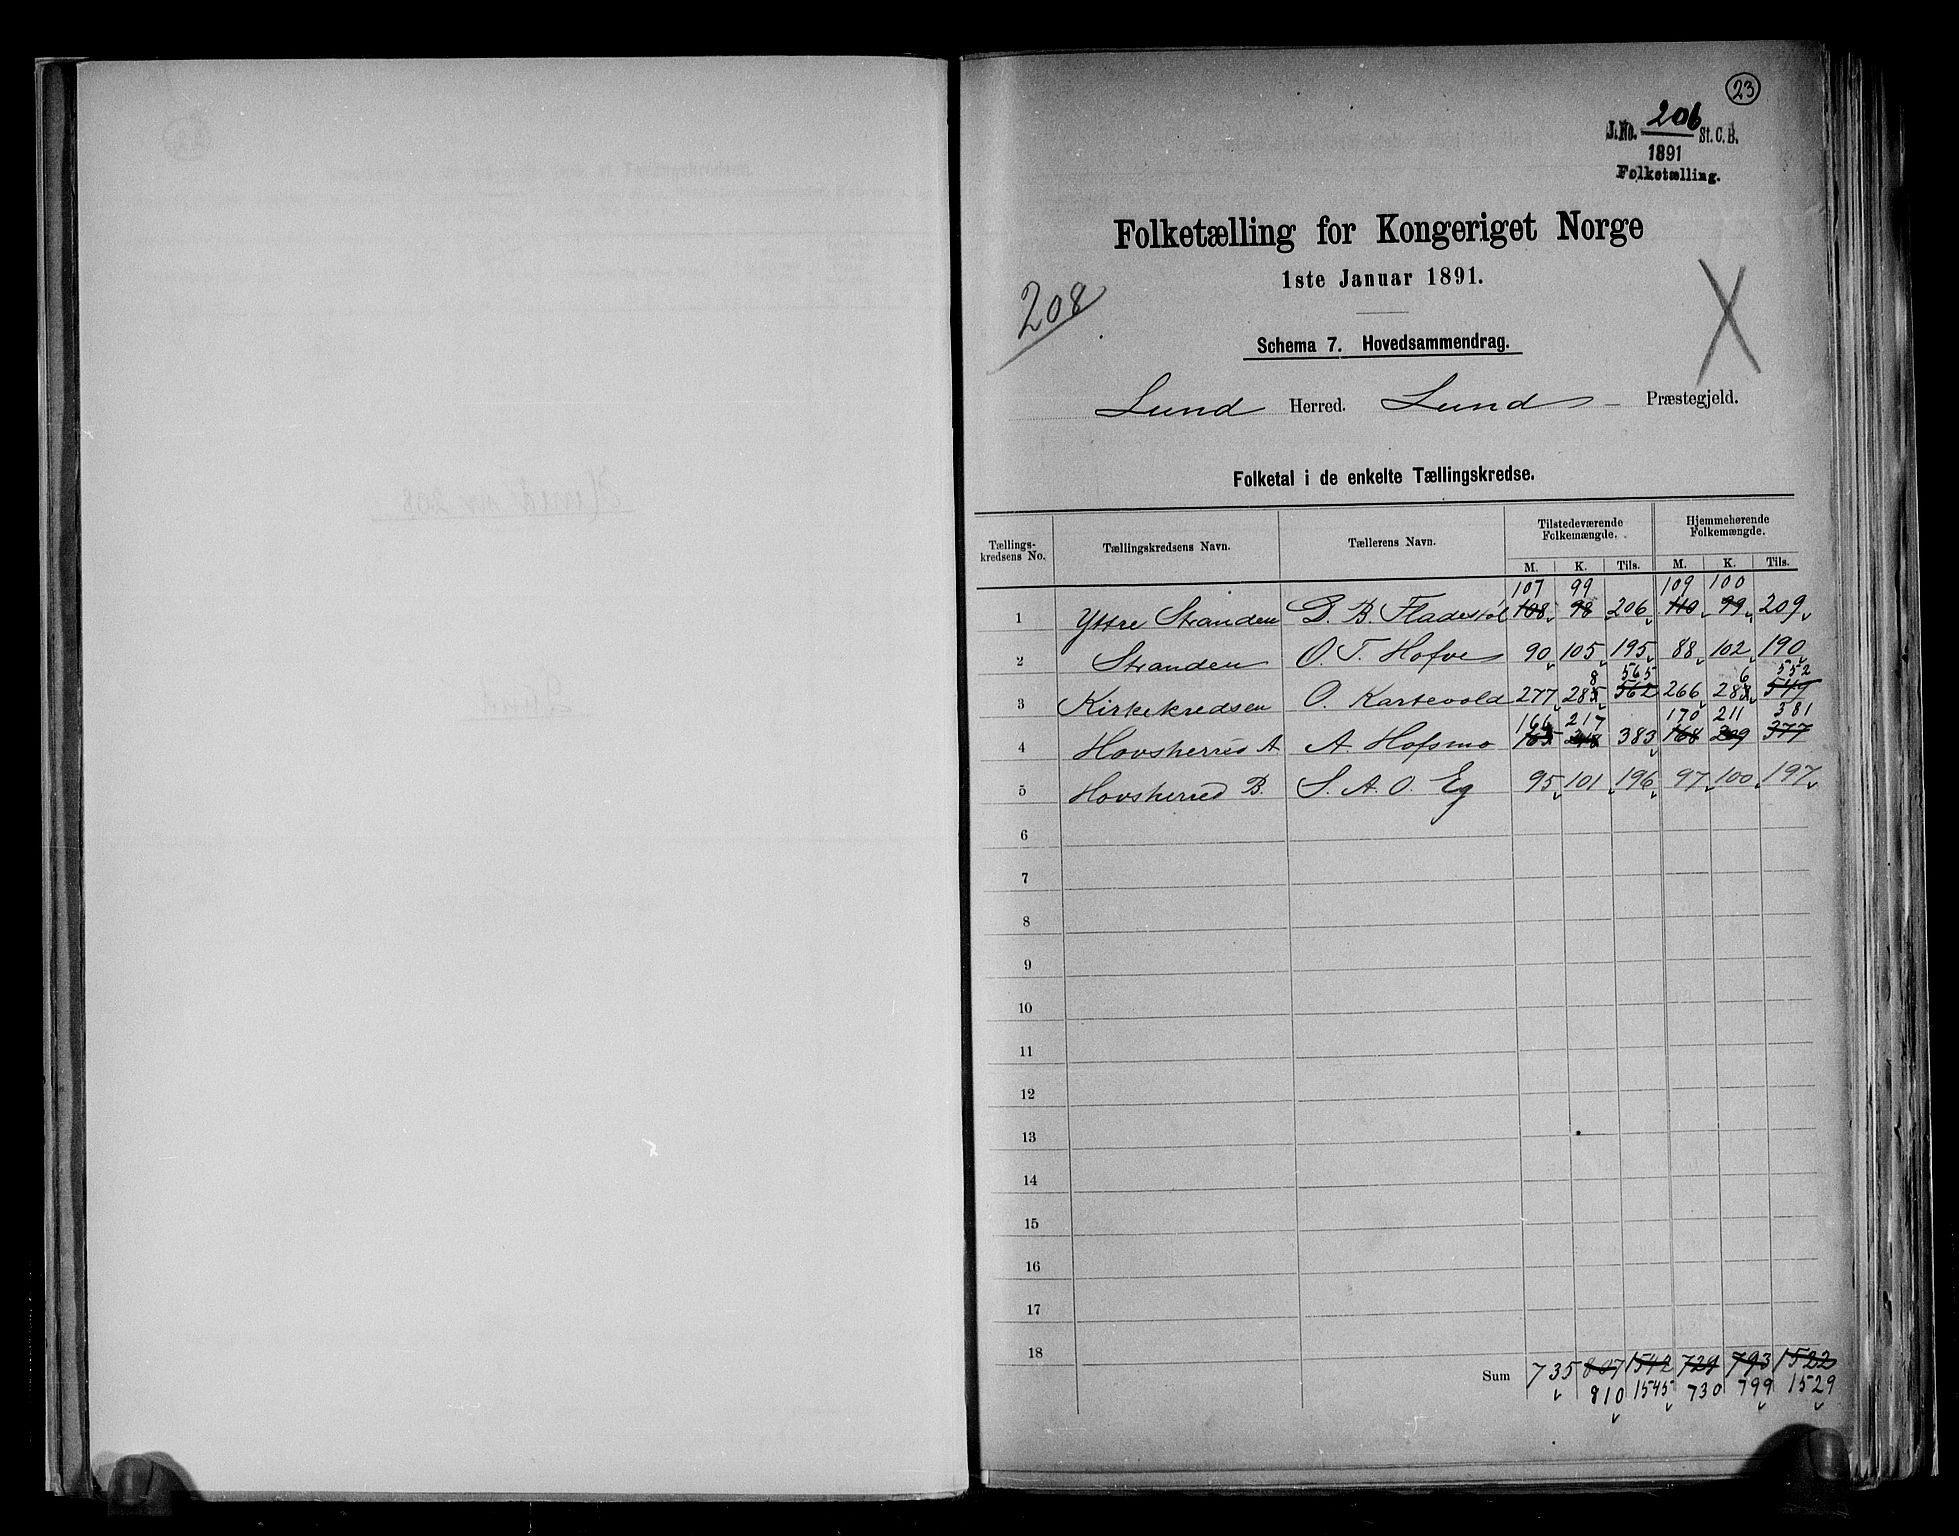 23
J. No. 206 St. C. B.
1891
Folketælling.
Folketælling for Kongeriget Norge
1ste Januar 1891.
208
X
Schema 7. Hovedsammendrag.
Lund Herred. Lund Præstegjeld.
Folketal i de enkelte Tællingskredse.
Tællings-kredsens No. Tællingskredsens Navn. Tællerens Navn. Tilstedeværende Folkemængde. Hjemmehørende Folkemængde.
M. K. Tils. M. K. Tils.
107 99 109 100
1 Yttre Stranden D. B. Fladestøl 108 98 206 110 99 209
2 Stranden O. T. Hofve 90 105 195 88 102 190
8 565 6 552
3 Kirkekredsen O. Kartevold 277 285 562 266 283 549
166 217 170 211 381
4 Hovsherred A A. Hofsmo 165 218 383 168 209 377
5 Hovsherred B. S. A. O. Eg 95 101 196 97 100 197
6
7
8
9
10
11
12
13
14
15
16
17
18
Sum 735 807 1542 729 793 1522
810 1545 730 799 1529
Herred nr 208
Lund